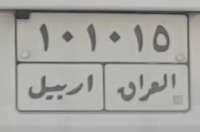 ١٠١٠١٥
اربيل العراق